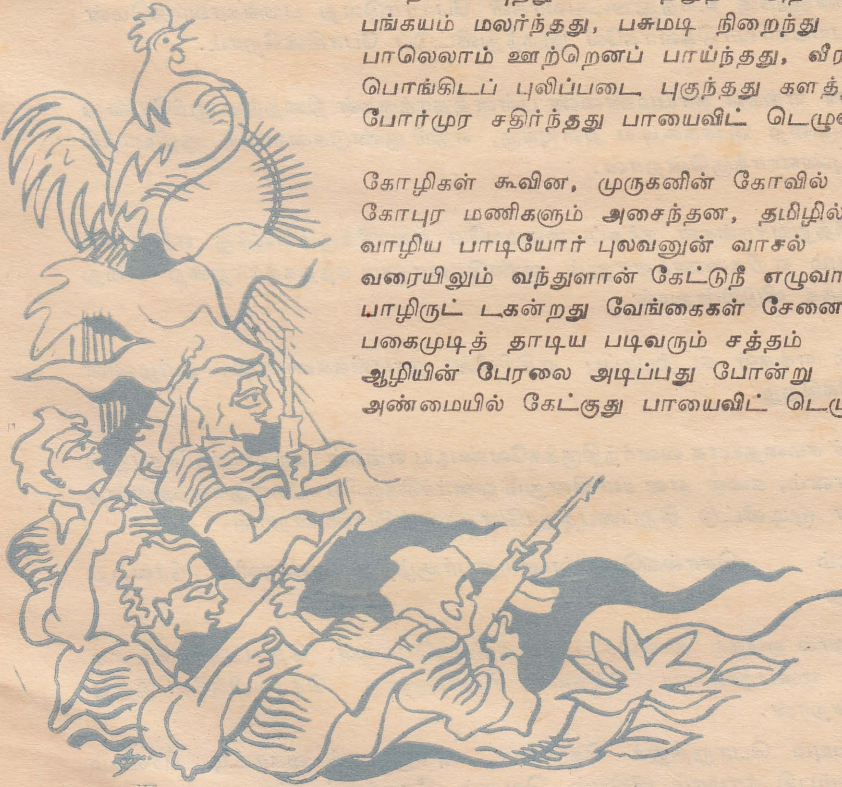 பங்கயம் மலர்ந்தது, பசுமடி நிறைந்து
பாலெலாம் ஊற்றெனப் பாய்ந்தது, வீர
பொங்கிடப் புலிப்படை புகுந்தது களத்
போர்முர சதிர்ந்தது பாயைவிட் டெழு
கோழிகள் கூவின, முருகனின் கோவில்
கோபுர மணிகளும் அசைந்தன, தமிழில்
வாழிய பாடியோர் புலவனுன் வாசல்
வரையிலும் வந்துளான் கேட்டுநீ எழுவா
பாழிருட் டகன்றது வேங்கைகள் சேனை
பகைமுடித் தாடிய படிவரும் சத்தம்
ஆழியின் பேரலை அடிப்பது போன்று
அண்மையில் கேட்குது பாயைவிட் டெழு